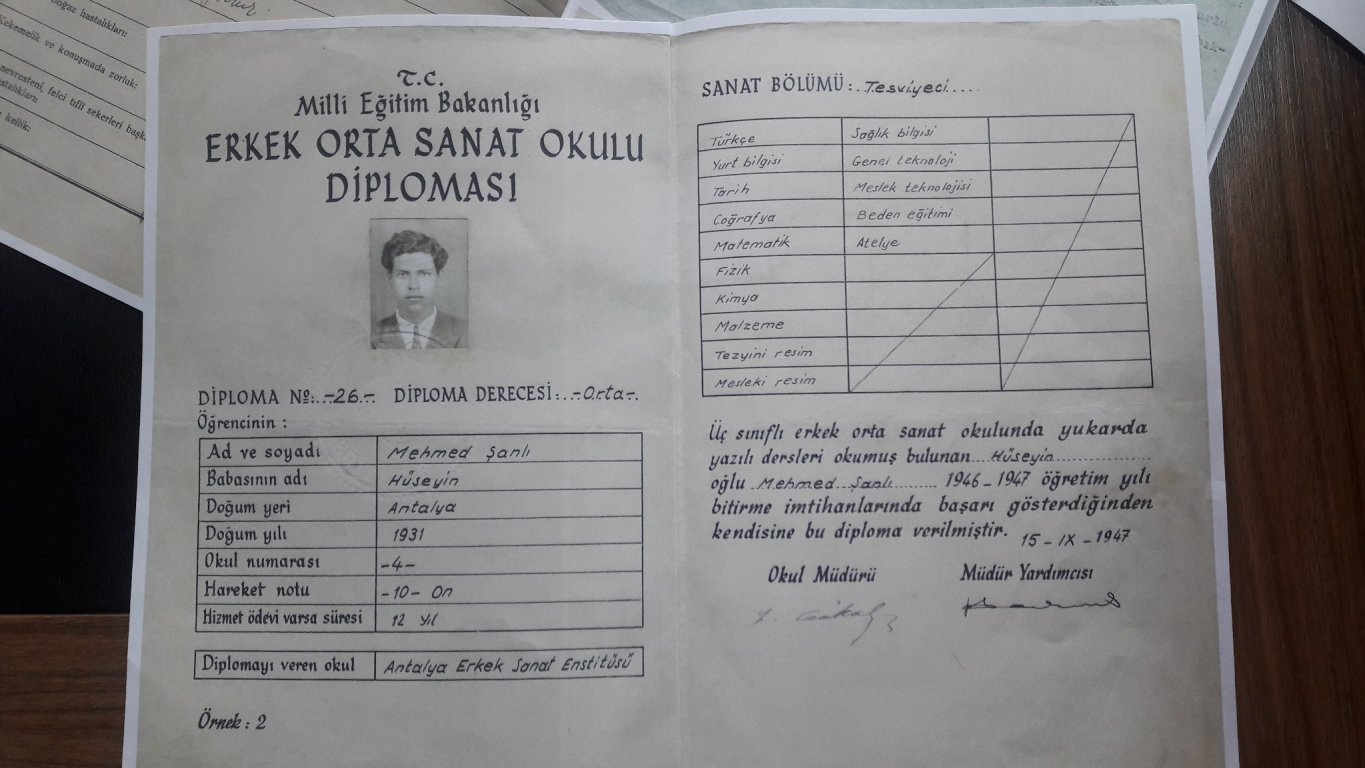 boğaz hastalıkları:
Kekemelik ve konuşmada zorluk:
nevresteni, felci tifli sekerleri başka
hastalıkları:
kellik:
T.C.
Milli Eğitim Bakanlığı
ERKEK ORTA SANAT OKULU
DİPLOMASI
DİPLOMA No:..-26.- DİPLOMA DERECESİ:..-Orta-.
Öğrencinin :
Ad ve soyadı Mehmed Şanlı
Babasının adı Hüseyin
Doğum yeri Antalya
Doğum yılı 1931
Okul numarası -4-
Hareket notu -10- On
Hizmet ödevi varsa süresi 12 Yıl
Diplomayı veren okul Antalya Erkek Sanat Enstitüsü
Örnek : 2
SANAT BÖLÜMÜ:..Tesviyeci....
Türkçe Sağlık bilgisi
Yurt bilgisi Genel teknoloji
Tarih Meslek teknolojisi
Coğrafya Beden eğitimi
Matematik Atelye
Fizik
Kimya
Malzeme
Tezyini resim
Mesleki resim
Üç sınıflı erkek orta sanat okulunda yukarda
yazılı dersleri okumuş bulunan...Hüseyin...............
oğlu..Mehmed.Şanlı......... 1946-1947 öğretim yılı
bitirme imtihanlarında başarı gösterdiğinden
kendisine bu diploma verilmiştir. 15-IX-1947
Okul Müdürü Müdür Yardımcısı